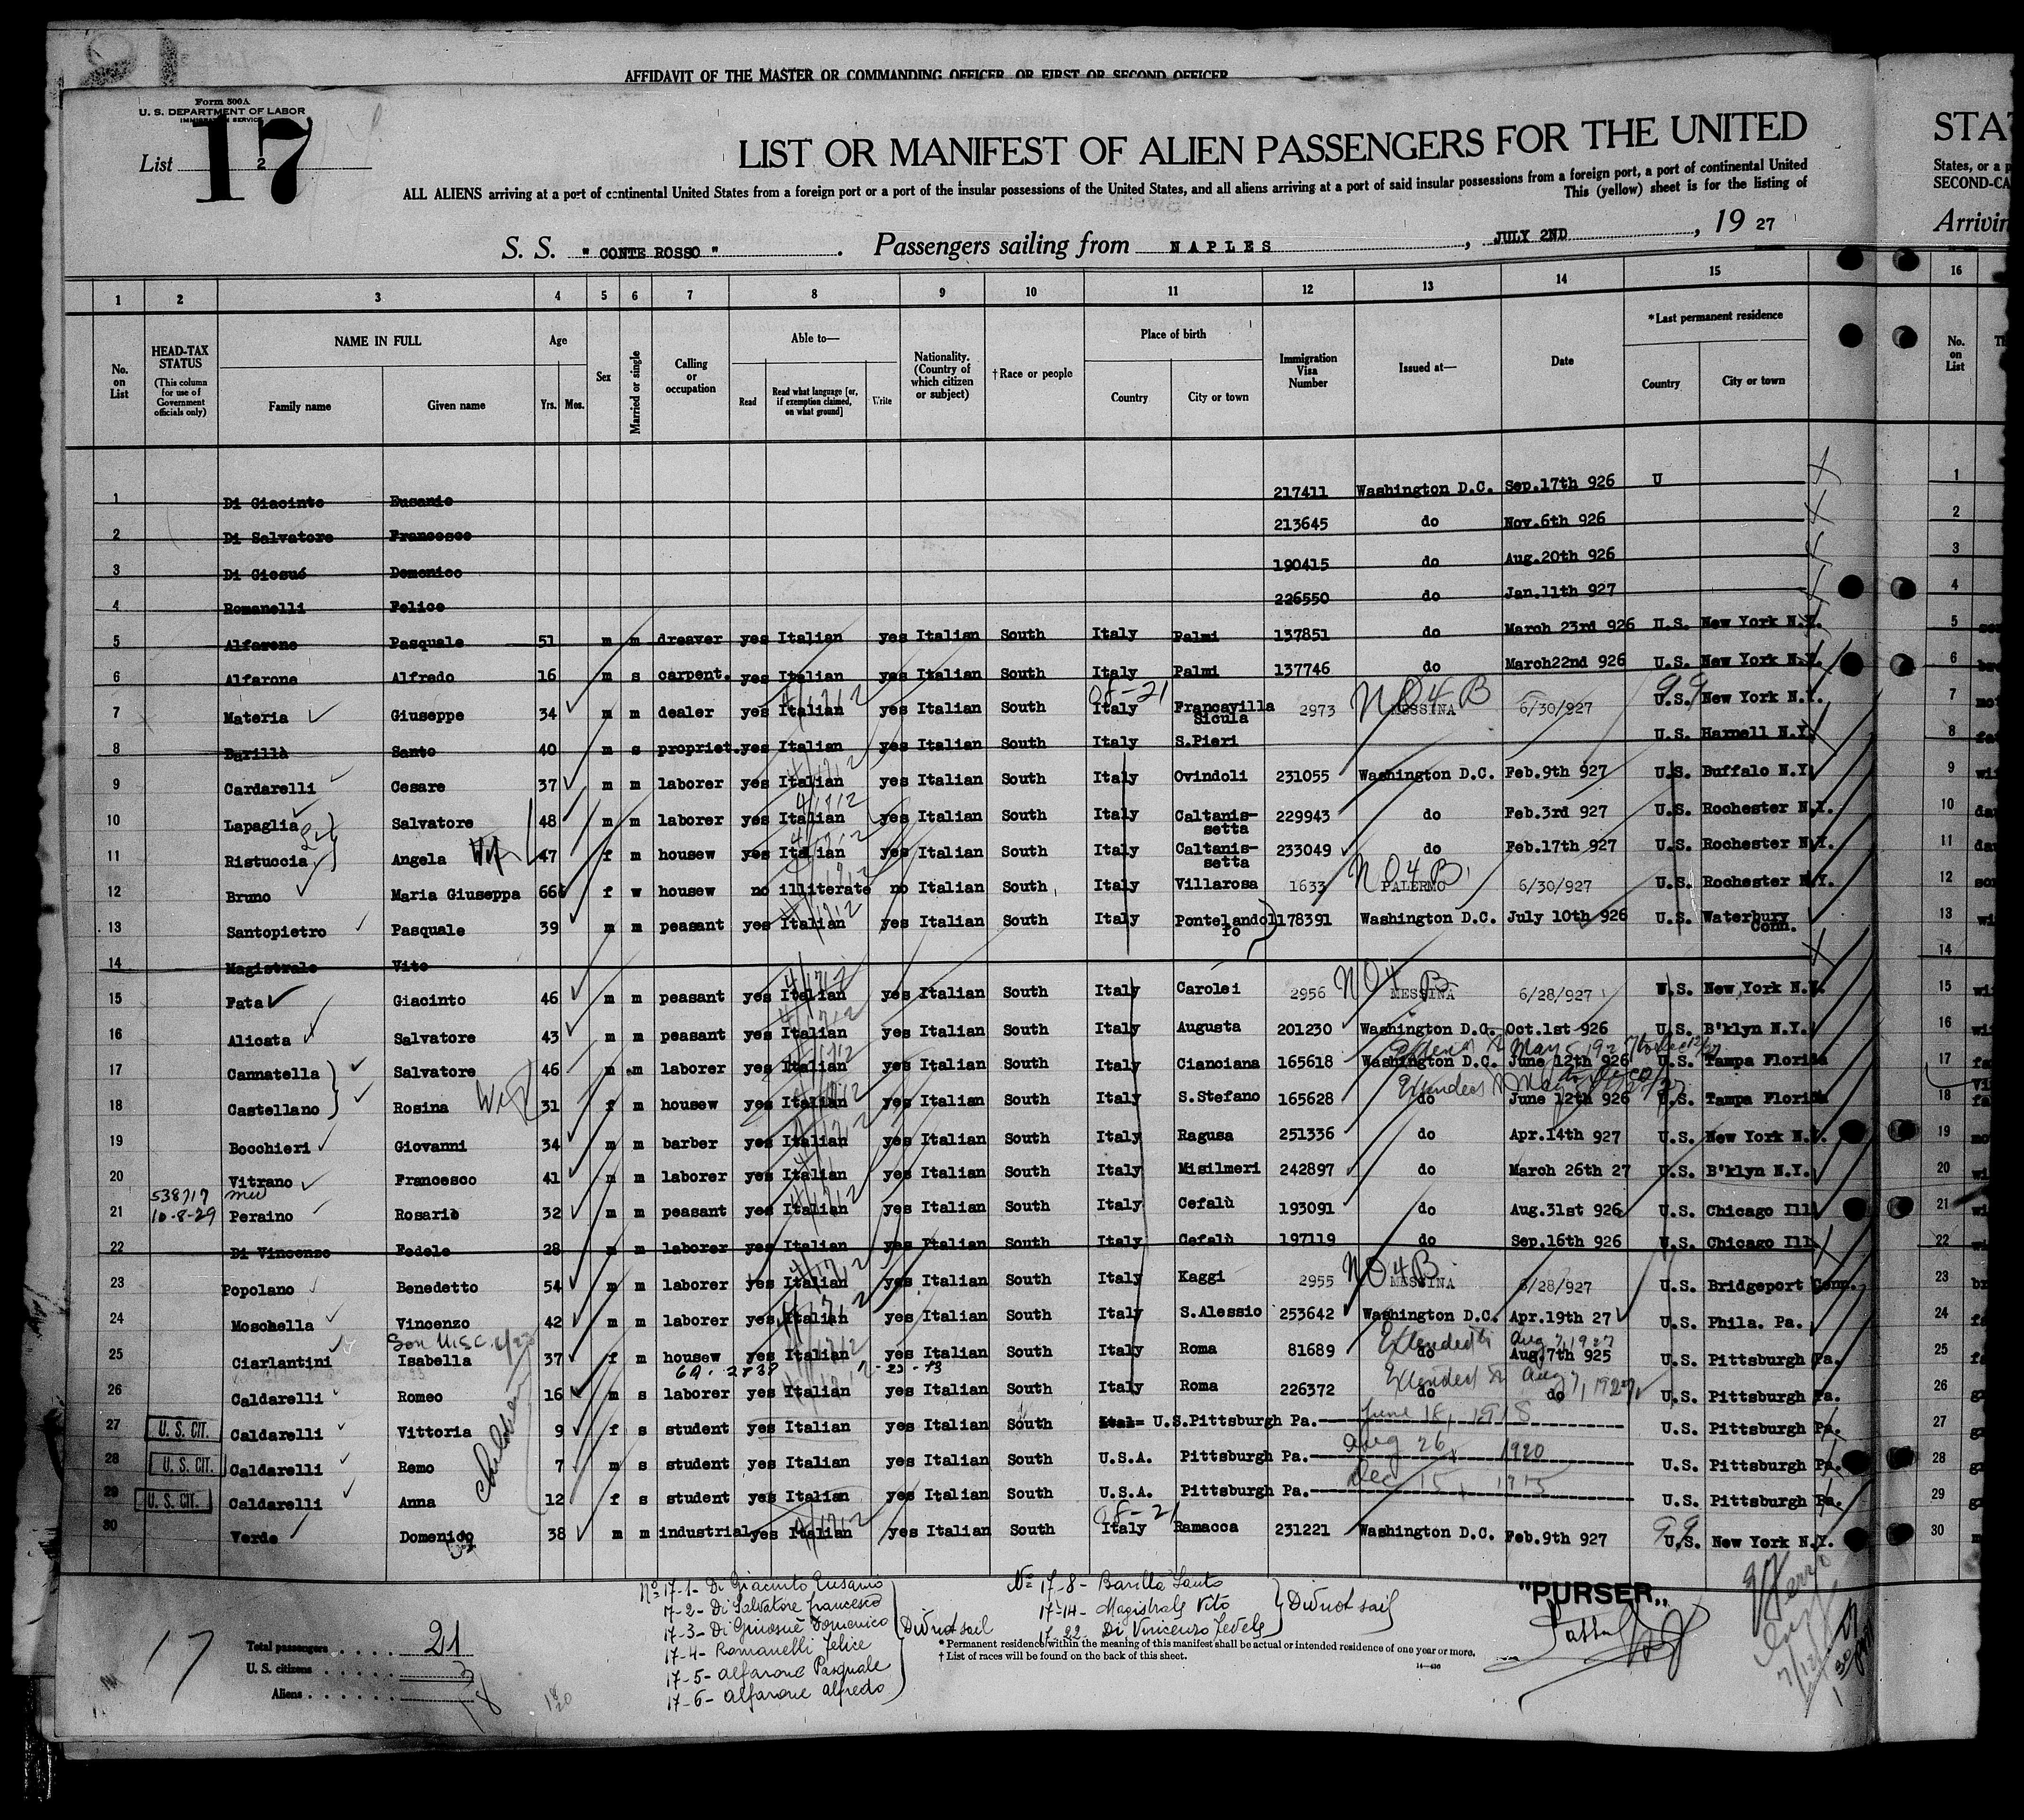 AFFIDAVIT OF THE MASTER OR COMMANDING OFFICER, OR FIRST OR SECOND OFFICER
Form 500A
U. S. DEPARTMENT OF LABOR
IMMIGRATION SERVICE
List 2
17
LIST OR MANIFEST OF ALIEN PASSENGERS FOR THE UNITED
STA
ALL ALIENS arriving at a port of continental United States from a foreign port or a port of the insular possessions of the United States, and all aliens arriving at a port of said insular possessions from a foreign port, a port of continental United
States, or a p
This (yellow) sheet is for the listing of
SECOND-CA
S. S. "CONTE ROSSO". Passengers sailing from NAPLES, JULY 2ND, 19 27
Arrivin
1 2 3 4 5 6 7 8 9 10 11 12 13 14 15 16
No. on List
HEAD-TAX STATUS
(This column for use of Government officials only)
NAME IN FULL
Family name
Given name
Age
Yrs. Mos.
Sex
Married or single
Calling or occupation
Able to—
Read
Read what language [or, if exemption claimed, on what ground]
Write
Nationality. (Country of which citizen or subject)
†Race or people
Place of birth
Country
City or town
Immigration Visa Number
Issued at—
Date
*Last permanent residence
Country
City or town
No. on List
1 Di Giacinto Eusanio 217411 Washington D.C. Sep.17th 926 U 1
2 Di Salvatore Francesco 213645 do Nov.6th 926 2
3 Di Giosué Domenico 190415 do Aug.20th 926 3
4 Romanelli Felice 226550 do Jan.11th 927 4
5 Alfarone Pasquale 51 m m dreaver yes Italian yes Italian South Italy Palmi 137851 do March 23rd 926 U.S. New York N.Y. 5
6 Alfarone Alfredo 16 m s carpent. yes Italian yes Italian South Italy Palmi 137746 do March22nd 926 U.S. New York N.Y. 6
7 Materia Giuseppe 34 m m dealer yes Italian yes Italian South Italy Francavilla Sicula 2973 MESSINA NO4B 6/30/927 U.S. New York N.Y. 7
8 Barillà Santo 40 m s propriet. yes Italian yes Italian South Italy S.Pieri U.S. Harnell N.Y. 8
9 Cardarelli Cesare 37 m m laborer yes Italian yes Italian South Italy Ovindoli 231055 Washington D.C. Feb.9th 927 U.S. Buffalo N.Y. 9
10 Lapaglia Salvatore 48 m m laborer yes Italian yes Italian South Italy Caltanis-setta 229943 do Feb.3rd 927 U.S. Rochester N.Y. 10
11 Ristuccia Angela 47 f m housew yes Italian yes Italian South Italy Caltanis-setta 233049 do Feb.17th 927 U.S. Rochester N.Y. 11
12 Bruno Maria Giuseppa 66 f w housew no illiterate no Italian South Italy Villarosa 1633 PALERMO NO4B 6/30/927 U.S. Rochester N.Y. 12
13 Santopietro Pasquale 39 m m peasant yes Italian yes Italian South Italy Pontelandolfo 178391 Washington D.C. July 10th 926 U.S. Waterbury Conn. 13
14 Magistrale Vito 14
15 Fata Giacinto 46 m m peasant yes Italian yes Italian South Italy Carolei 2956 MESSINA NO4B 6/28/927 U.S. New York N.Y. 15
16 Alicata Salvatore 43 m m peasant yes Italian yes Italian South Italy Augusta 201230 Washington D.C. Oct.1st 926 U.S. B'klyn N.Y. 16
17 Cannatella Salvatore 46 m m laborer yes Italian yes Italian South Italy Cianciana 165618 Washington D.C. June 12th 926 U.S. Tampa Florida 17
18 Castellano Rosina 31 f m housew yes Italian yes Italian South Italy S.Stefano 165628 do June 12th 926 U.S. Tampa Florida 18
19 Bocchieri Giovanni 34 m m barber yes Italian yes Italian South Italy Ragusa 251336 do Apr.14th 927 U.S. New York N.Y. 19
20 Vitrano Francesco 41 m m laborer yes Italian yes Italian South Italy Misilmeri 242897 do March 26th 27 U.S. B'klyn N.Y. 20
538717
21 10-8-29 Peraino Rosario 32 m m peasant yes Italian yes Italian South Italy Cefalù 193091 do Aug.31st 926 U.S. Chicago Ill 21
22 Di Vincenzo Fedele 28 m m laborer yes Italian yes Italian South Italy Cefalù 197119 do Sep.16th 926 U.S. Chicago Ill 22
23 Popolano Benedetto 54 m m laborer yes Italian yes Italian South Italy Kaggi 2955 MESSINA NO4B 6/28/927 U.S. Bridgeport Conn. 23
24 Moschella Vincenzo 42 m m laborer yes Italian yes Italian South Italy S.Alessio 253642 Washington D.C. Apr.19th 27 U.S. Phila. Pa. 24
Extended to Aug 7, 1927
25 Ciarlantini Isabella 37 f m housew yes Italian yes Italian South Italy Roma 81689 do Aug.7th 925 U.S. Pittsburgh Pa. 25
Extended to Aug 7, 1927
26 Caldarelli Romeo 16 m s laborer yes Italian yes Italian South Italy Roma 226372 do do U.S. Pittsburgh Pa. 26
27 U. S. CIT. Caldarelli Vittoria 9 f s student yes Italian yes Italian South U.S. Pittsburgh Pa. June 18, 1918 U.S. Pittsburgh Pa. 27
28 U. S. CIT. Caldarelli Remo 7 m s student yes Italian yes Italian South U.S.A. Pittsburgh Pa. Aug 26, 1920 U.S. Pittsburgh Pa. 28
29 U. S. CIT. Caldarelli Anna 12 f s student yes Italian yes Italian South U.S.A. Pittsburgh Pa. Dec 15, 1915 U.S. Pittsburgh Pa. 29
children
30 Verde Domenico 38 m m industrial yes Italian yes Italian South Italy Ramacca 231221 Washington D.C. Feb.9th 927 U.S. New York N.Y. 30
No 17-1- Di Giacinto Eusanio
7-2- Di Salvatore francesco
17-3- Di Giuosuè Domenico
17-4- Romanelli felice
17-5- alfarone Pasquale
17-6- alfarone alfredo
Did not sail
No 17-8- Barilla Santo
17-14- Magistrale Vito
17-22- Di Vincenzo Fedele
Did not sail
"PURSER,,
17
Total passengers 21
U. S. citizens 3
Aliens 18
* Permanent residence within the meaning of this manifest shall be actual or intended residence of one year or more.
† List of races will be found on the back of this sheet.